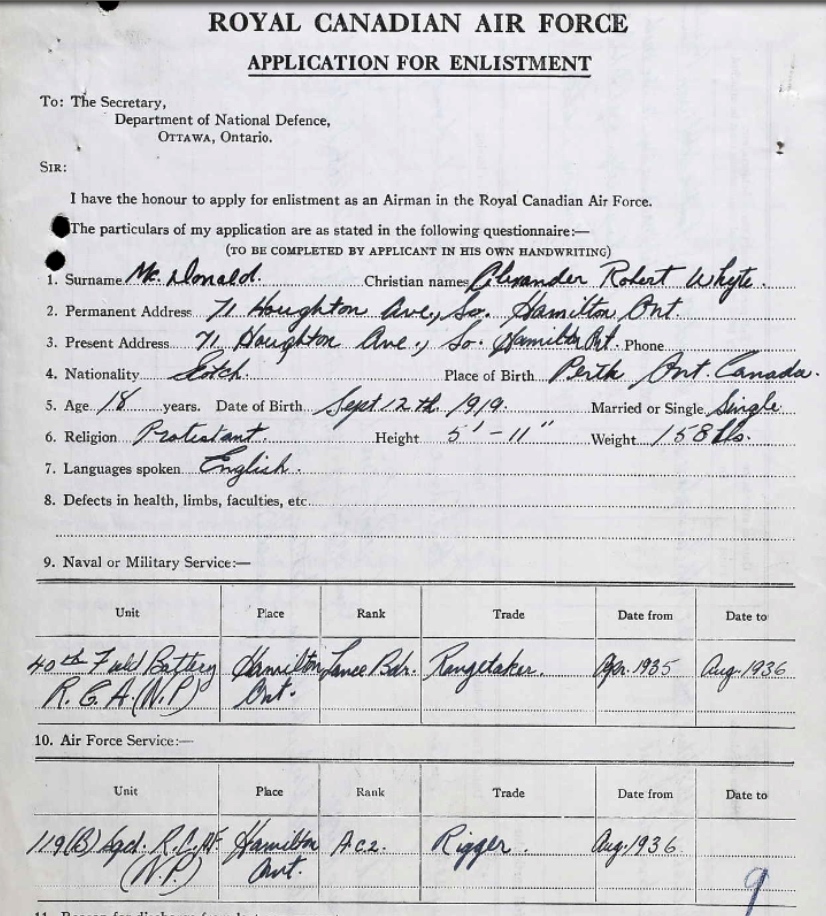 ROYAL CANADIAN AIR FORCE
APPLICATION FOR ENLISTMENT
To: The Secretary,
Department of National Defence,
OTTAWA, Ontario.
SIR:
I have the honour to apply for enlistment as an Airman in the Royal Canadian Air Force.
The particulars of my application are as stated in the following questionnaire:—
(TO BE COMPLETED BY APPLICANT IN HIS OWN HANDWRITING)
1. Surname Mc Donald. Christian names Alexander Robert Whyte.
2. Permanent Address 71 Houghton Ave., So. Hamilton Ont.
3. Present Address 71 Houghton Ave., So. Hamilton Ont. Phone
4. Nationality Scotch. Place of Birth Perth Ont. Canada.
5. Age 18 years. Date of Birth Sept 12th. 1919. Married or Single Single
6. Religion Protestant. Height 5' - 11" Weight 158 lbs.
7. Languages spoken English.
8. Defects in health, limbs, faculties, etc.
9. Naval or Military Service:—
Unit Place Rank Trade Date from Date to
40th Field Battery Hamilton Lance Bdr. Rangetaker. Apr. 1935 Aug. 1936
R.C.A. (N.P) Ont.
10. Air Force Service:—
Unit Place Rank Trade Date from Date to
119(B) Sqd. R.C.A.F. Hamilton Ac2. Rigger. Aug. 1936
(N.P) Ont.
9